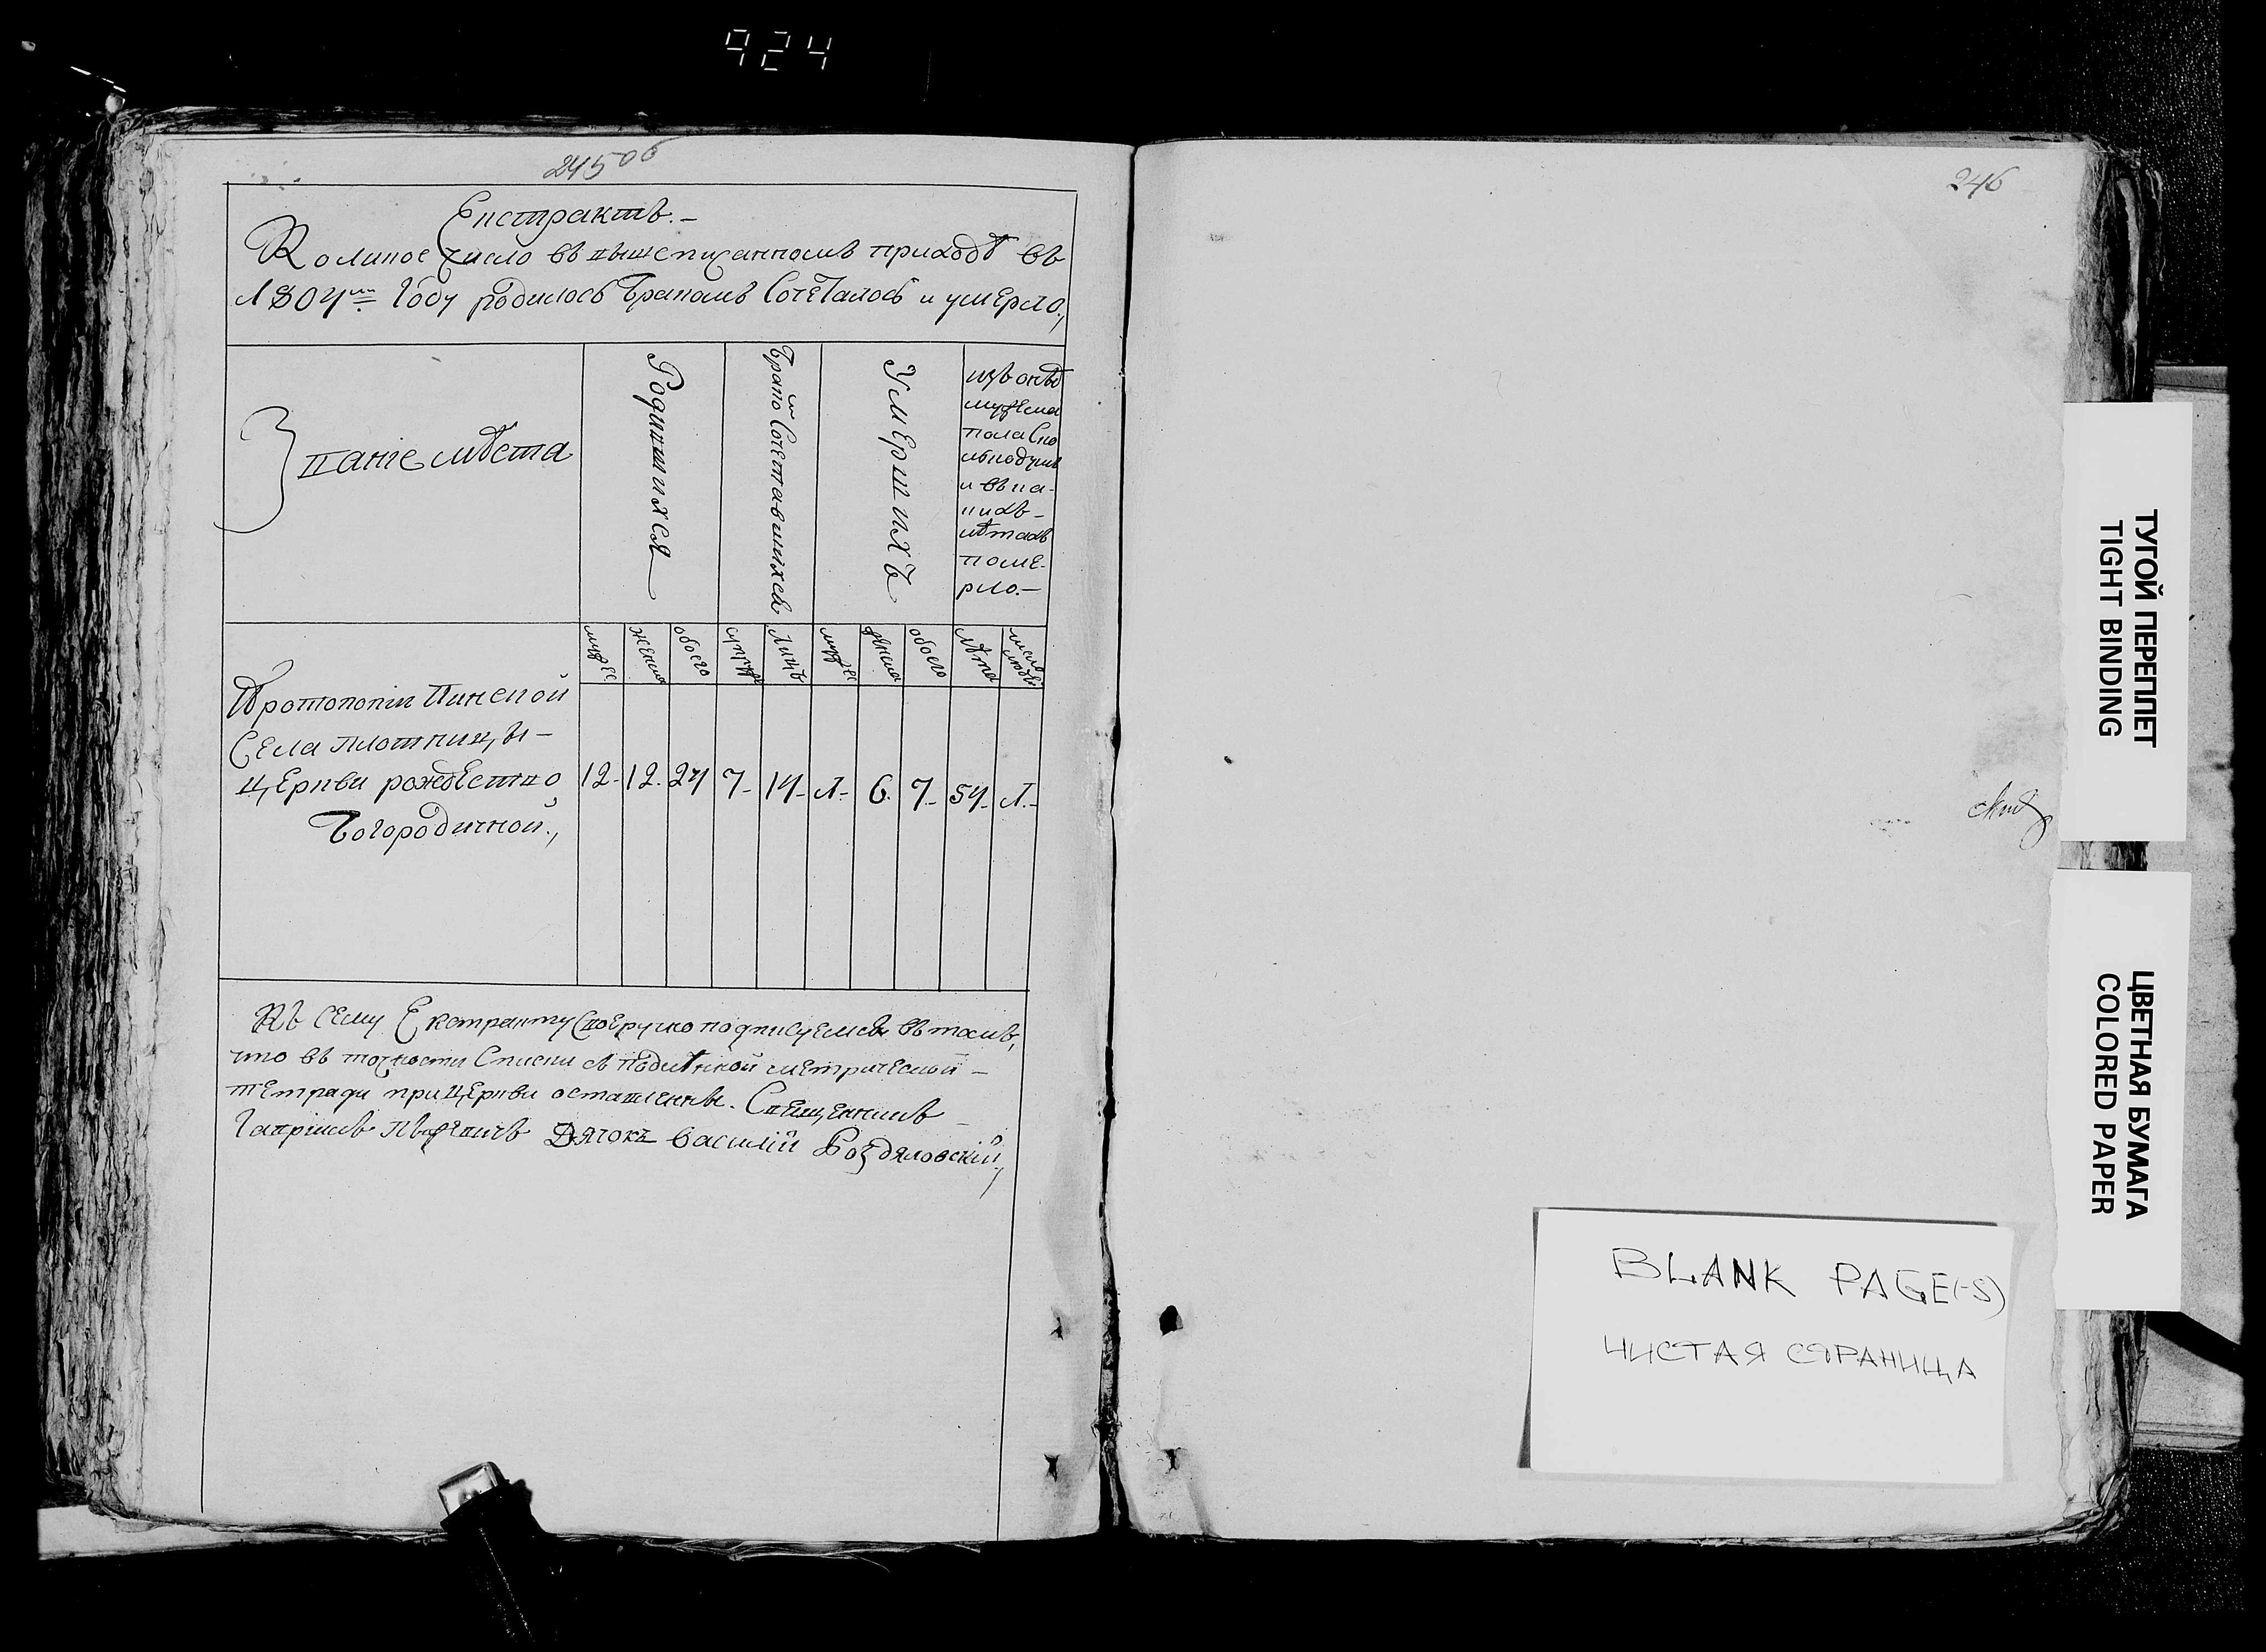 924
245 об
Екстрактъ.-
Коликое число въ вышеписанномъ приходѣ въ
1804м Году родилось бракомъ Сочеталось и умерло.,
Званіе мѣста
Родившихся
бракомъ Сочетавшихся
Умершихъ
изъ онѣхъ
мужеска
пола Ско
лько душъ
и въ ка-
кихъ-
лѣтахъ
поме-
рло.-
мужес
женска
обоего
супруж
Лицъ
мужес
женска
обоего
лѣта
число людей
Протопопіи Пинской
Села Плотницы-
Церкви рождество
Богородичной.,
12- 12. 24 7- 14- 1- 6. 7- 54- 1.-
Къ сему Екстракту своеручно подписуемся въ томъ,
что въ точности Списки съ подлѣнной метрической-
тетради при Церкви оставленны. Священникъ-
Гавріилъ Дячокъ Василій
246
ТУГОЙ ПЕРЕПЛЕТ
TIGHT BINDING
ЦВЕТНАЯ БУМАГА
COLORED PAPER
BLANK PAGE(-S)
ЧИСТАЯ СТРАНИЦА